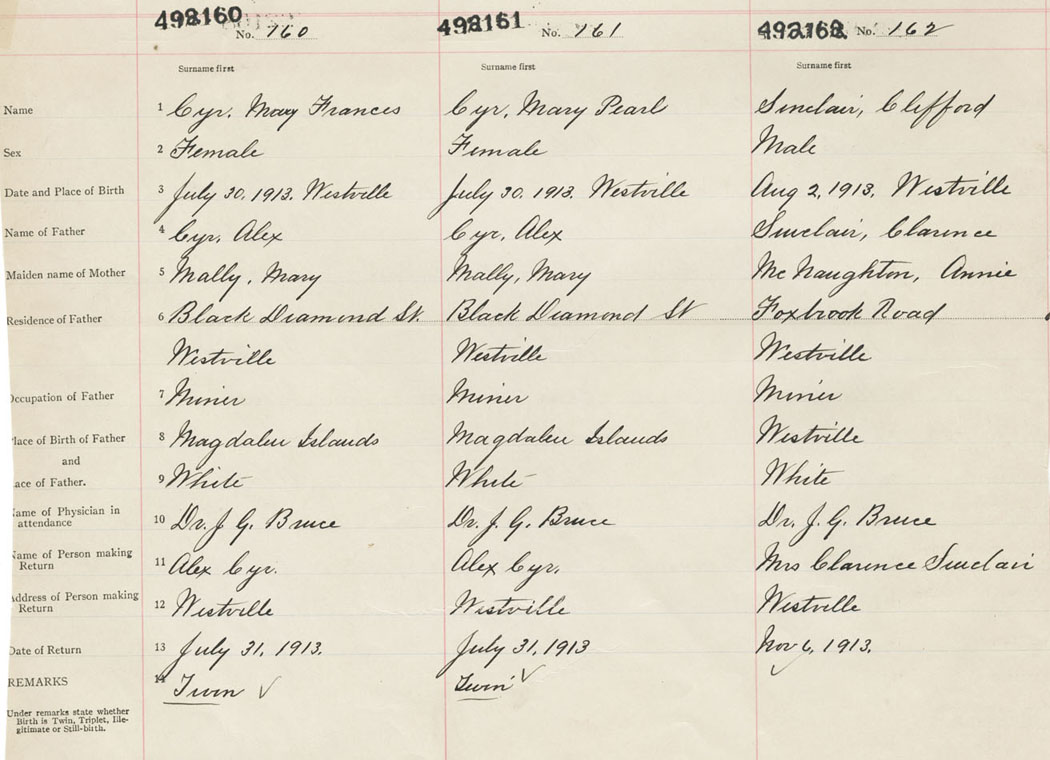 492160 No. 160 492161 No. 161 492162 No. 162
Surname first Surname first Surname first
Name 1 Cyr, Mary Frances Cyr, Mary Pearl Sinclair, Clifford
Sex 2 Female Female Male
Date and Place of Birth 3 July 30, 1913. Westville July 30, 1913. Westville Aug 2, 1913. Westville
Name of Father 4 Cyr, Alex Cyr, Alex Sinclair, Clarence
Maiden name of Mother 5 Mally, Mary Mally, Mary McNaughton, Annie
Residence of Father 6 Black Diamond St. Black Diamond St Foxbrook Road
Westville Westville Westville
Occupation of Father 7 Miner Miner Miner
Place of Birth of Father 8 Magdalen Islands Magdalen Islands Westville
and
ace of Father. 9 White White White
Name of Physician in
attendance 10 Dr. J. G. Bruce Dr. J. G. Bruce Dr. J. G. Bruce
Name of Person making
Return 11 Alex Cyr. Alex Cyr. Mrs Clarence Sinclair
Address of Person making
Return 12 Westville Westville Westville
Date of Return 13 July 31, 1913. July 31, 1913 Nov 6, 1913.
REMARKS 14 Twin ✓ Twin ✓
Under remarks state whether
Birth is Twin, Triplet, Ille-
gitimate or Still-birth.